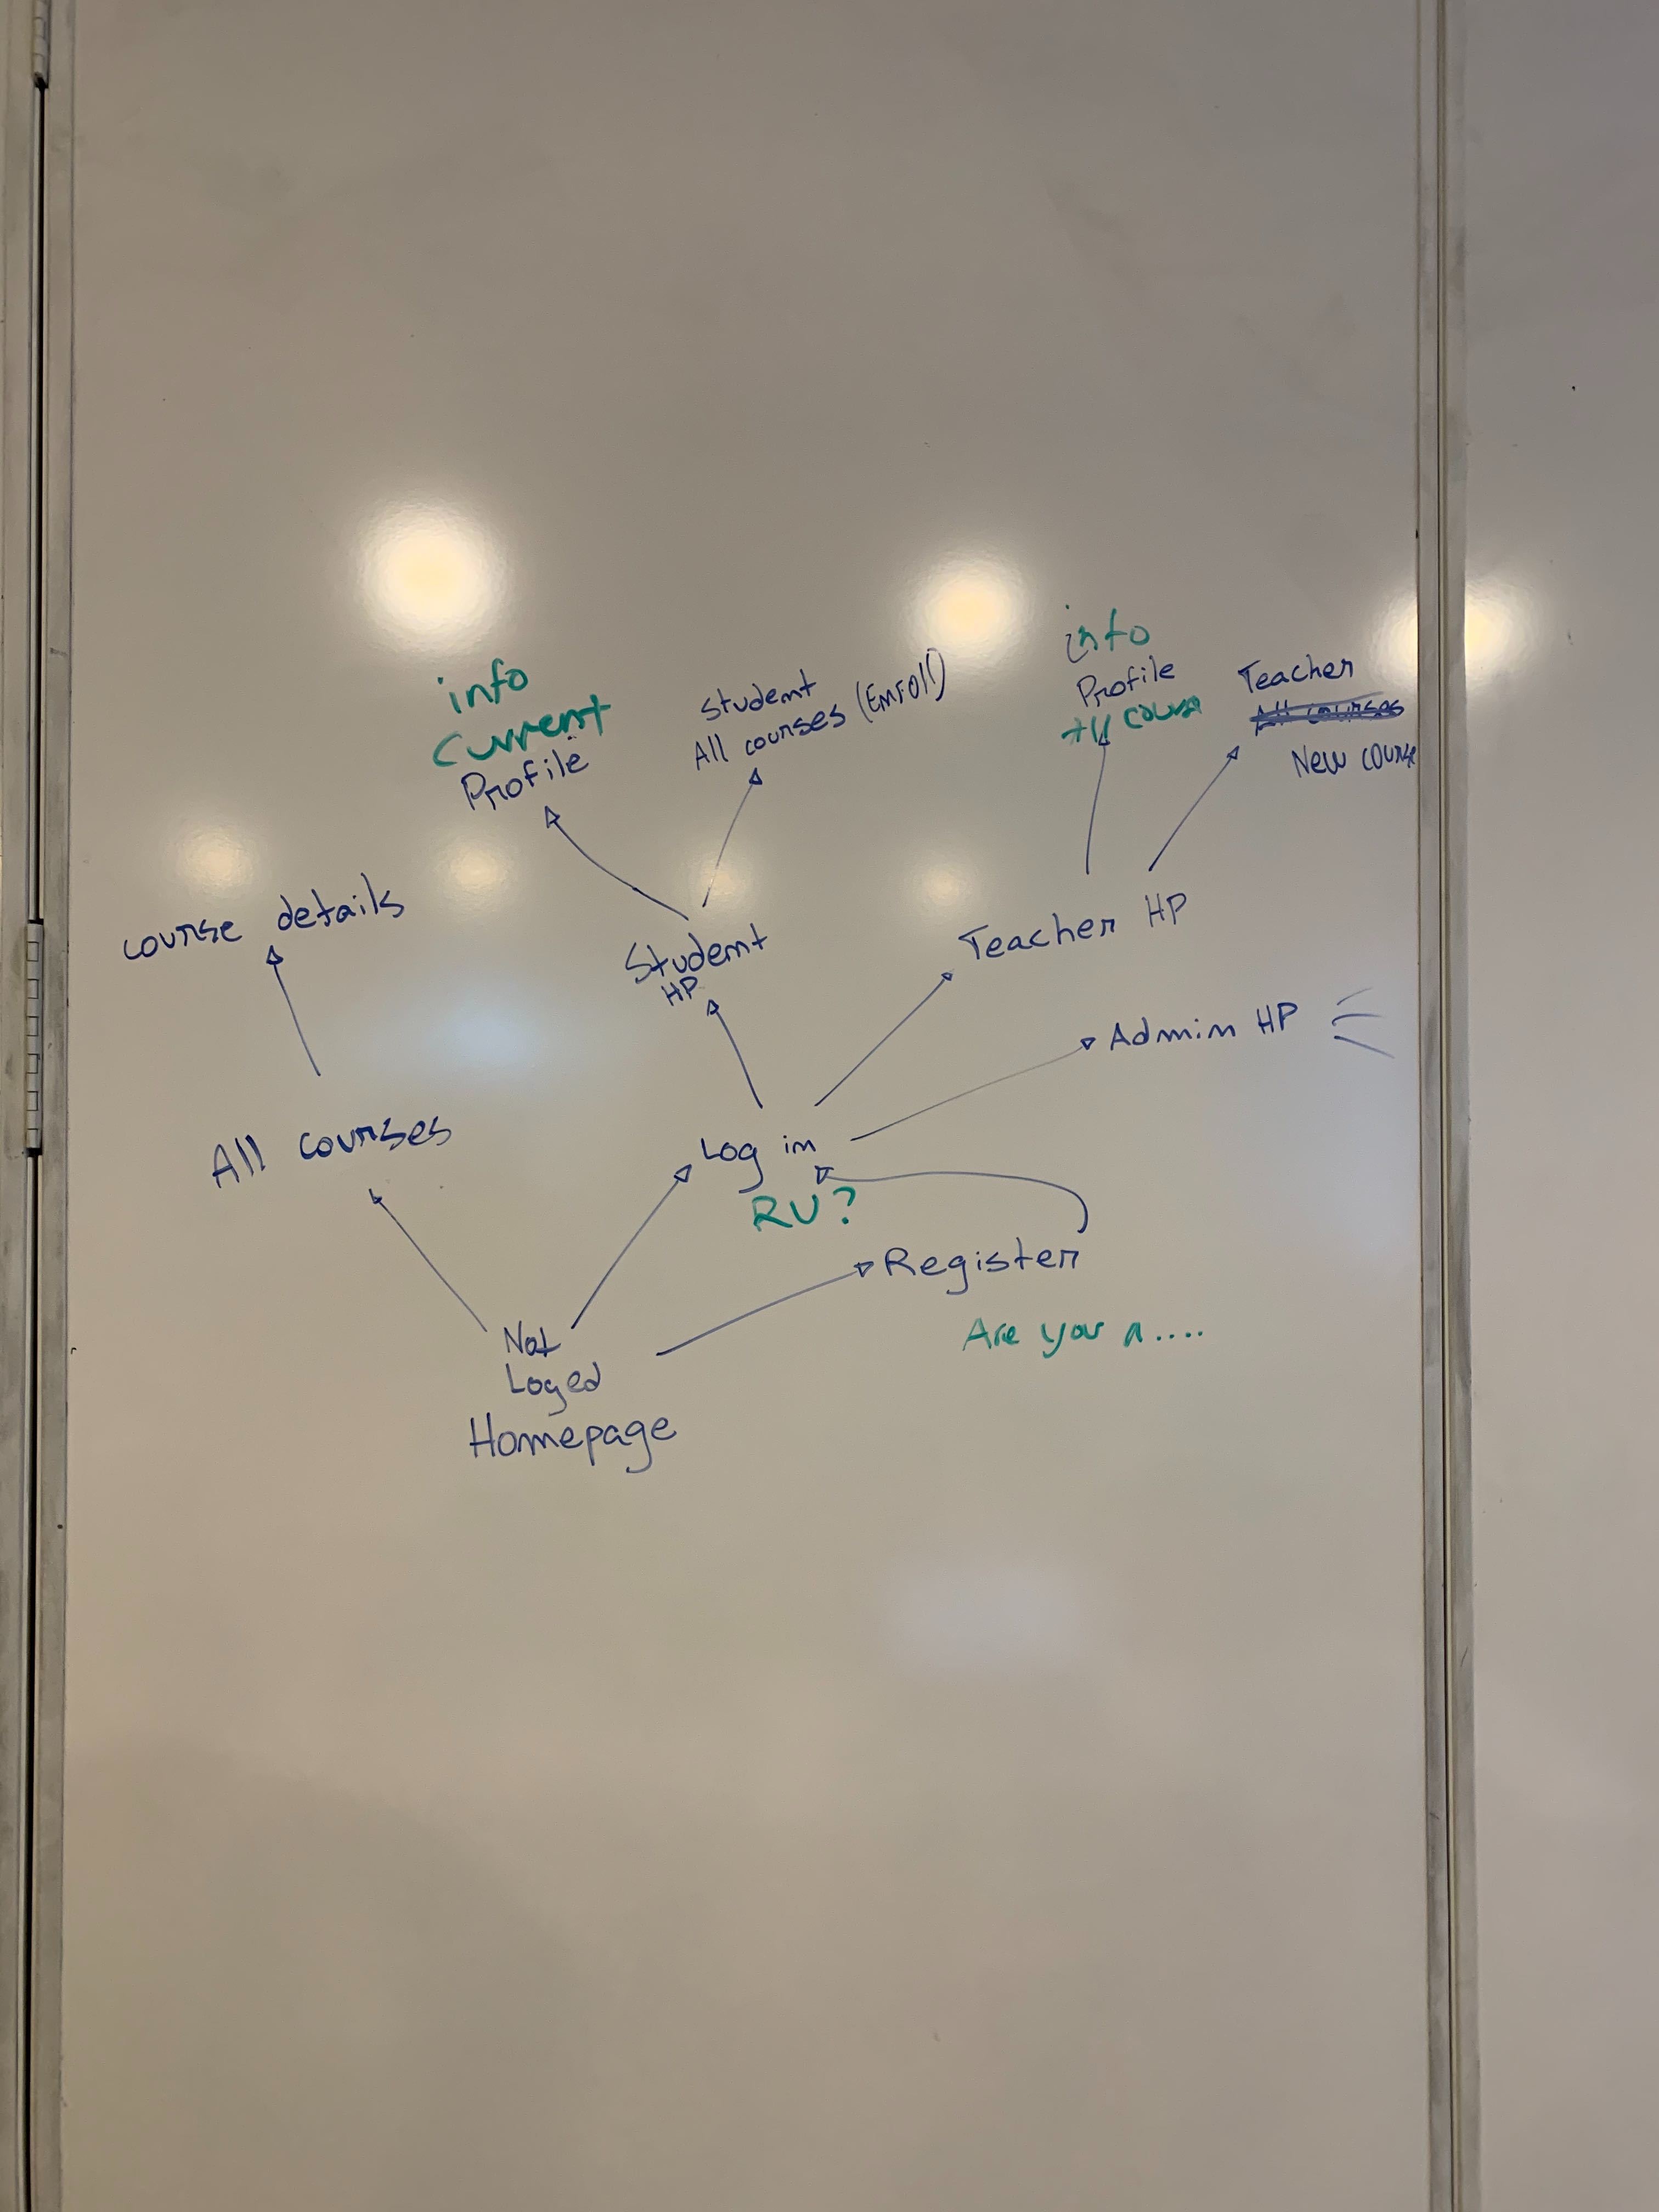 info
current
Profile
Student
All courses (Enroll)
info
Profile
Teacher
All courses
New course
course details
Student
HP
Teacher HP
Admin HP
All courses
Log in
RU?
Register
Are you a....
Not
Loged
Homepage